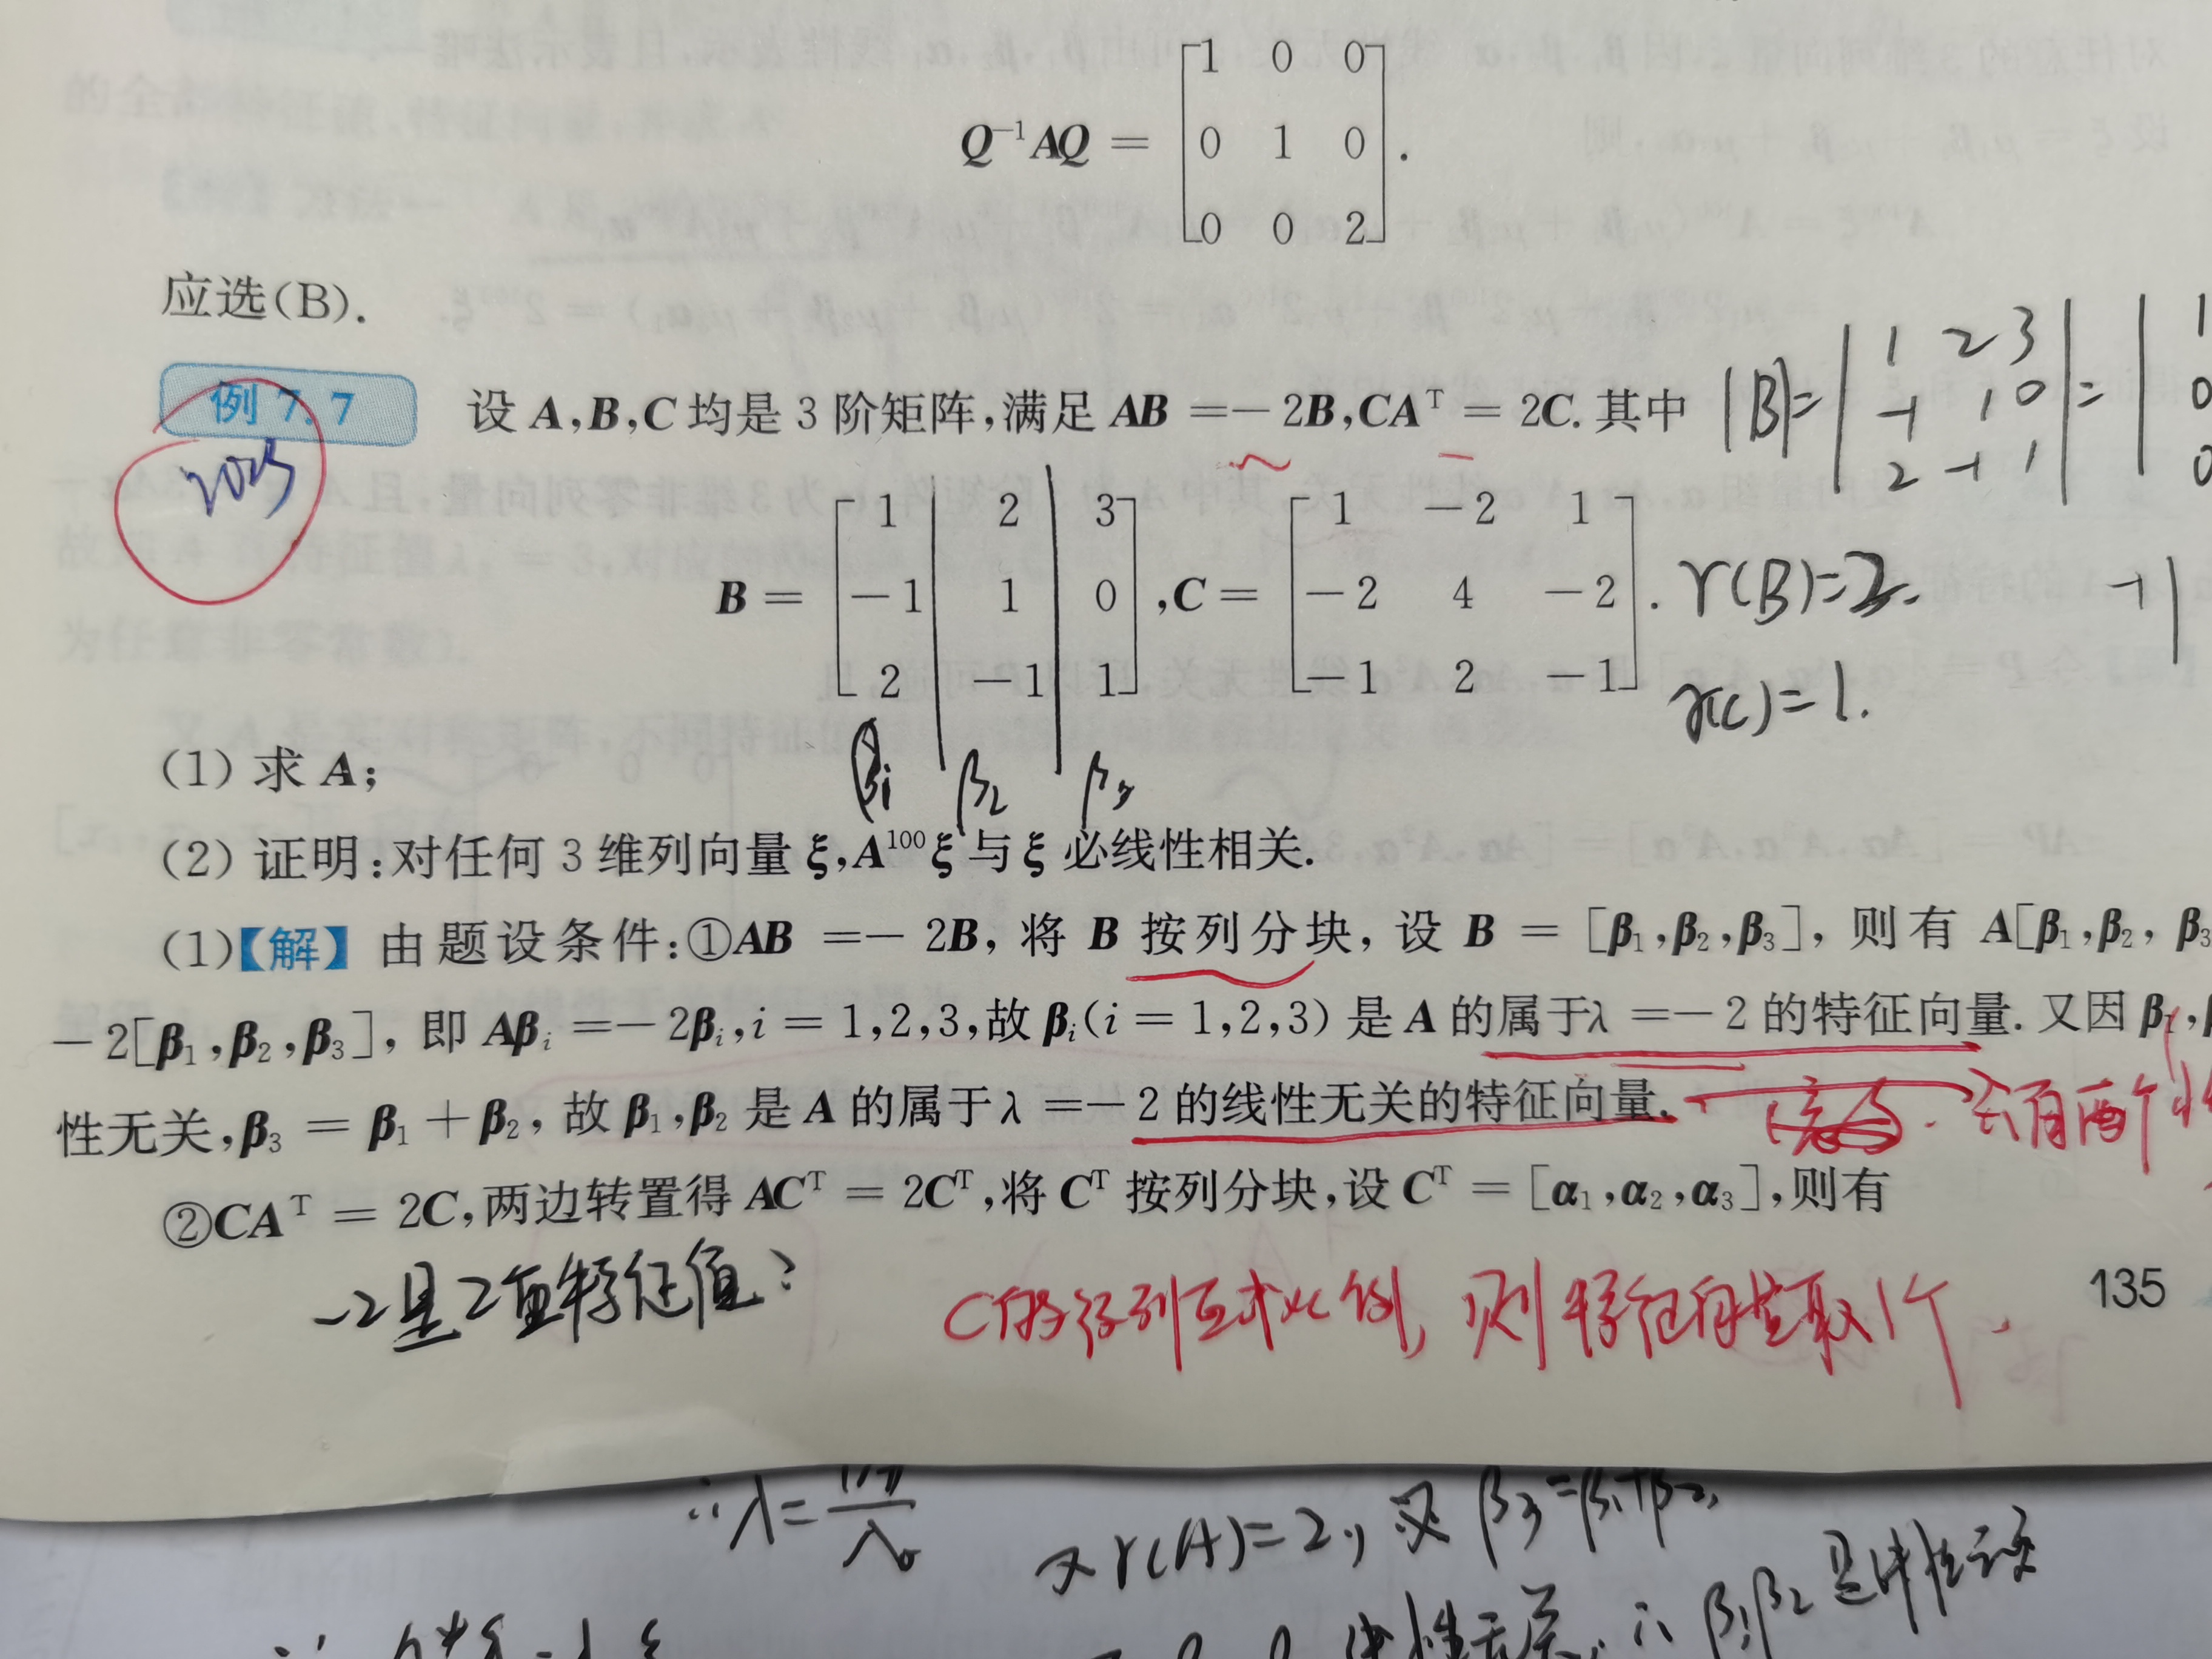 Q⁻¹AQ = [1 0 0
0 1 0
0 0 2].
应选(B).
例 7.7 设 A,B,C 均是 3 阶矩阵,满足 AB =− 2B,CAᵀ = 2C. 其中
2025
|B|= | 1 2 3 | = | 1
-1 1 0 0
2 -1 1 0
B = [1 2 3
−1 1 0
2 −1 1] ,C = [1 −2 1
−2 4 −2
−1 2 −1].
r(B)=2.
r(C)=1.
-1|
β₁ β₂ β₃
(1) 求 A;
(2) 证明:对任何 3 维列向量 ξ,A¹⁰⁰ξ与ξ 必线性相关.
(1)【解】 由题设条件:①AB =− 2B, 将 B 按列分块, 设 B = [β₁,β₂,β₃], 则有 A[β₁,β₂, β₃
− 2[β₁,β₂,β₃], 即 Aβᵢ =− 2βᵢ,i = 1,2,3,故 βᵢ(i = 1,2,3) 是 A 的属于λ =− 2 的特征向量. 又因 β₁,
性无关,β₃ = β₁ + β₂, 故 β₁,β₂ 是 A 的属于 λ =− 2 的线性无关的特征向量.
只有两个
②CAᵀ = 2C,两边转置得 ACᵀ = 2Cᵀ,将 Cᵀ 按列分块,设 Cᵀ = [α₁,α₂,α₃],则有
-2是2重特征值?
C的各列互成比例, 则特征向量取1个.
135
∴λ=
λ₀
又r(A)=2, 又 β₃=β₁+β₂,
线性无关, ∴ β₁β₂是线性无关